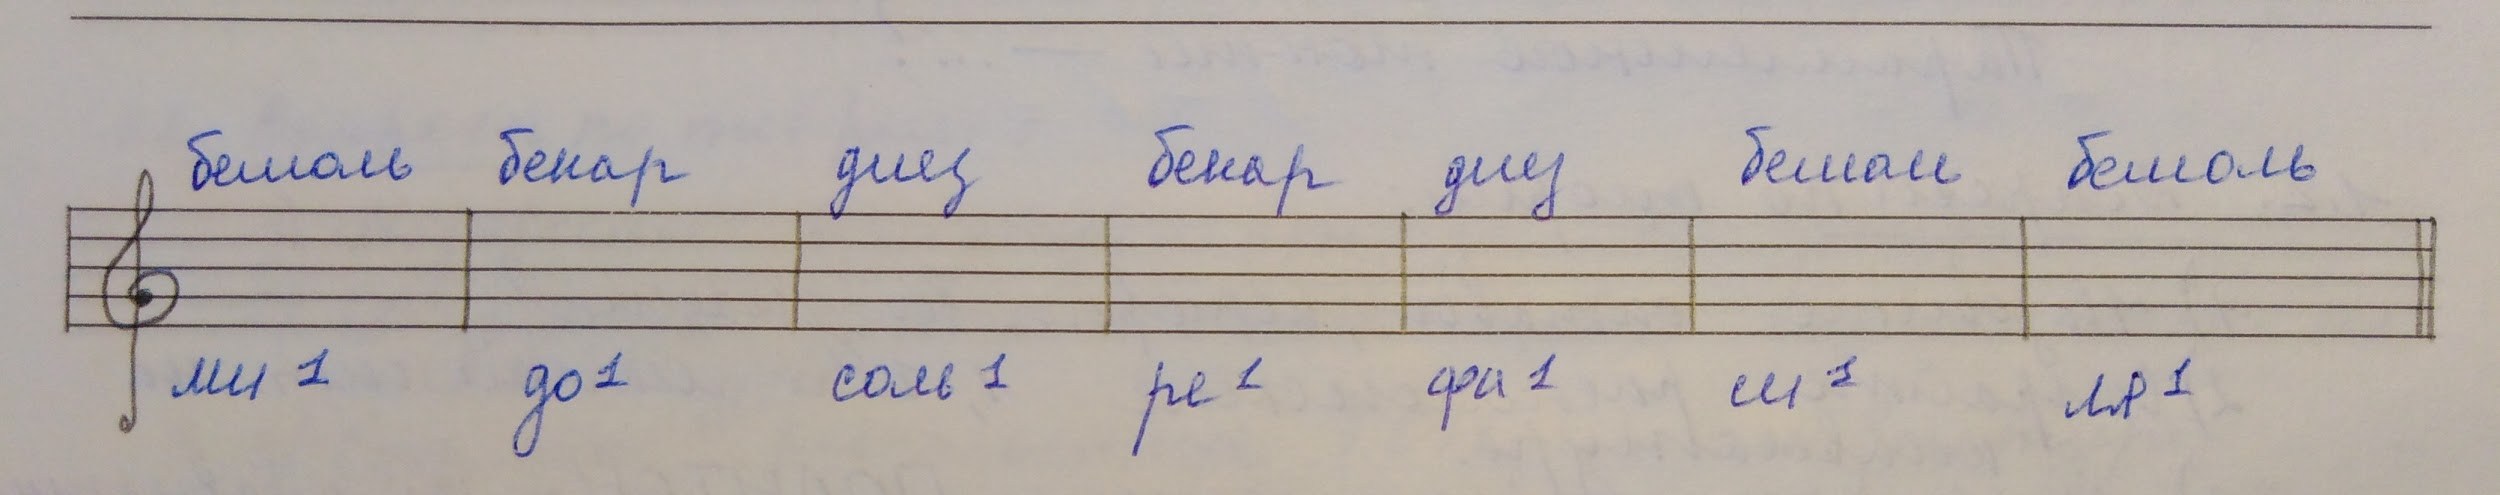 бемоль бекар диез бекар диез бемоль бемоль
ми 1 до 1 соль 1 ре 1 фа 1 си 1 ля 1